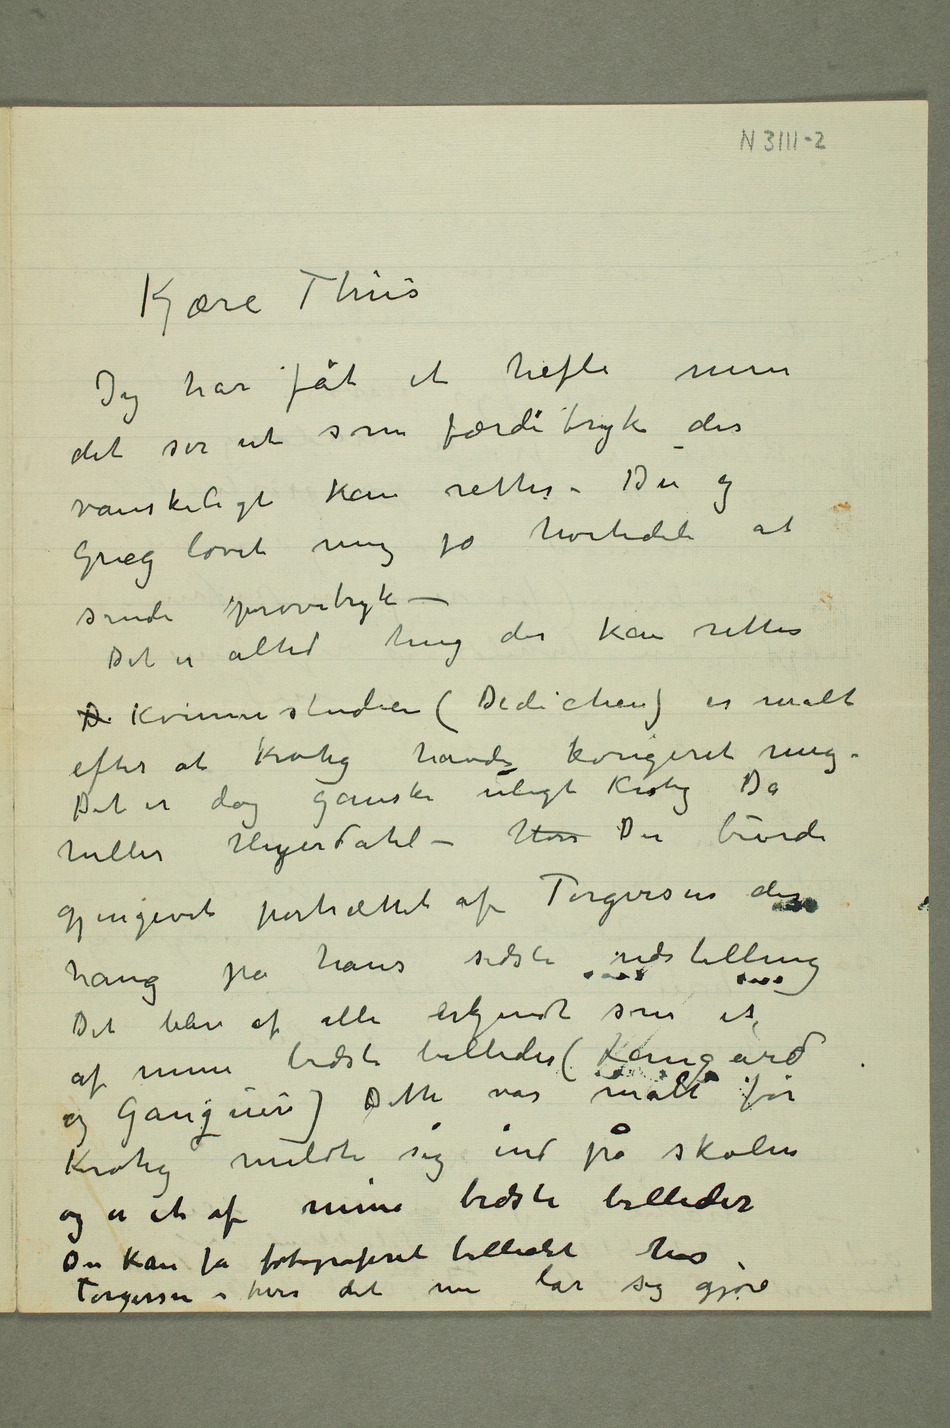 N 3111-2
Kjære Thiis
Jeg har fåt et hefte men
det ser ut som færditryk der
vanskeligt kan rettes – Du og
Grieg lovet mig jo hertidele at
sende prøvetryk –
Det er altid ting der kan rettes
D Kvinnestudien (Dedichen) er malt
efter at Krohg havde korigeret mig –
Det er dog ganske uligt Krohg Da
heller Heyerdahl – Hvis Du burde
gjengivet portrættet af Torgersen der
hang på hans sidste udstilling
Det blev af alle erkjendt som et
af mine bedste billeder (Langård
og Ganguin) Dette var målt før
Krohg meldte sig ind på skolen
og er et af mine bedste billeder
Du kan få fotograferet billedet hos
Torgersen – hvis det nu lar sig gjøre